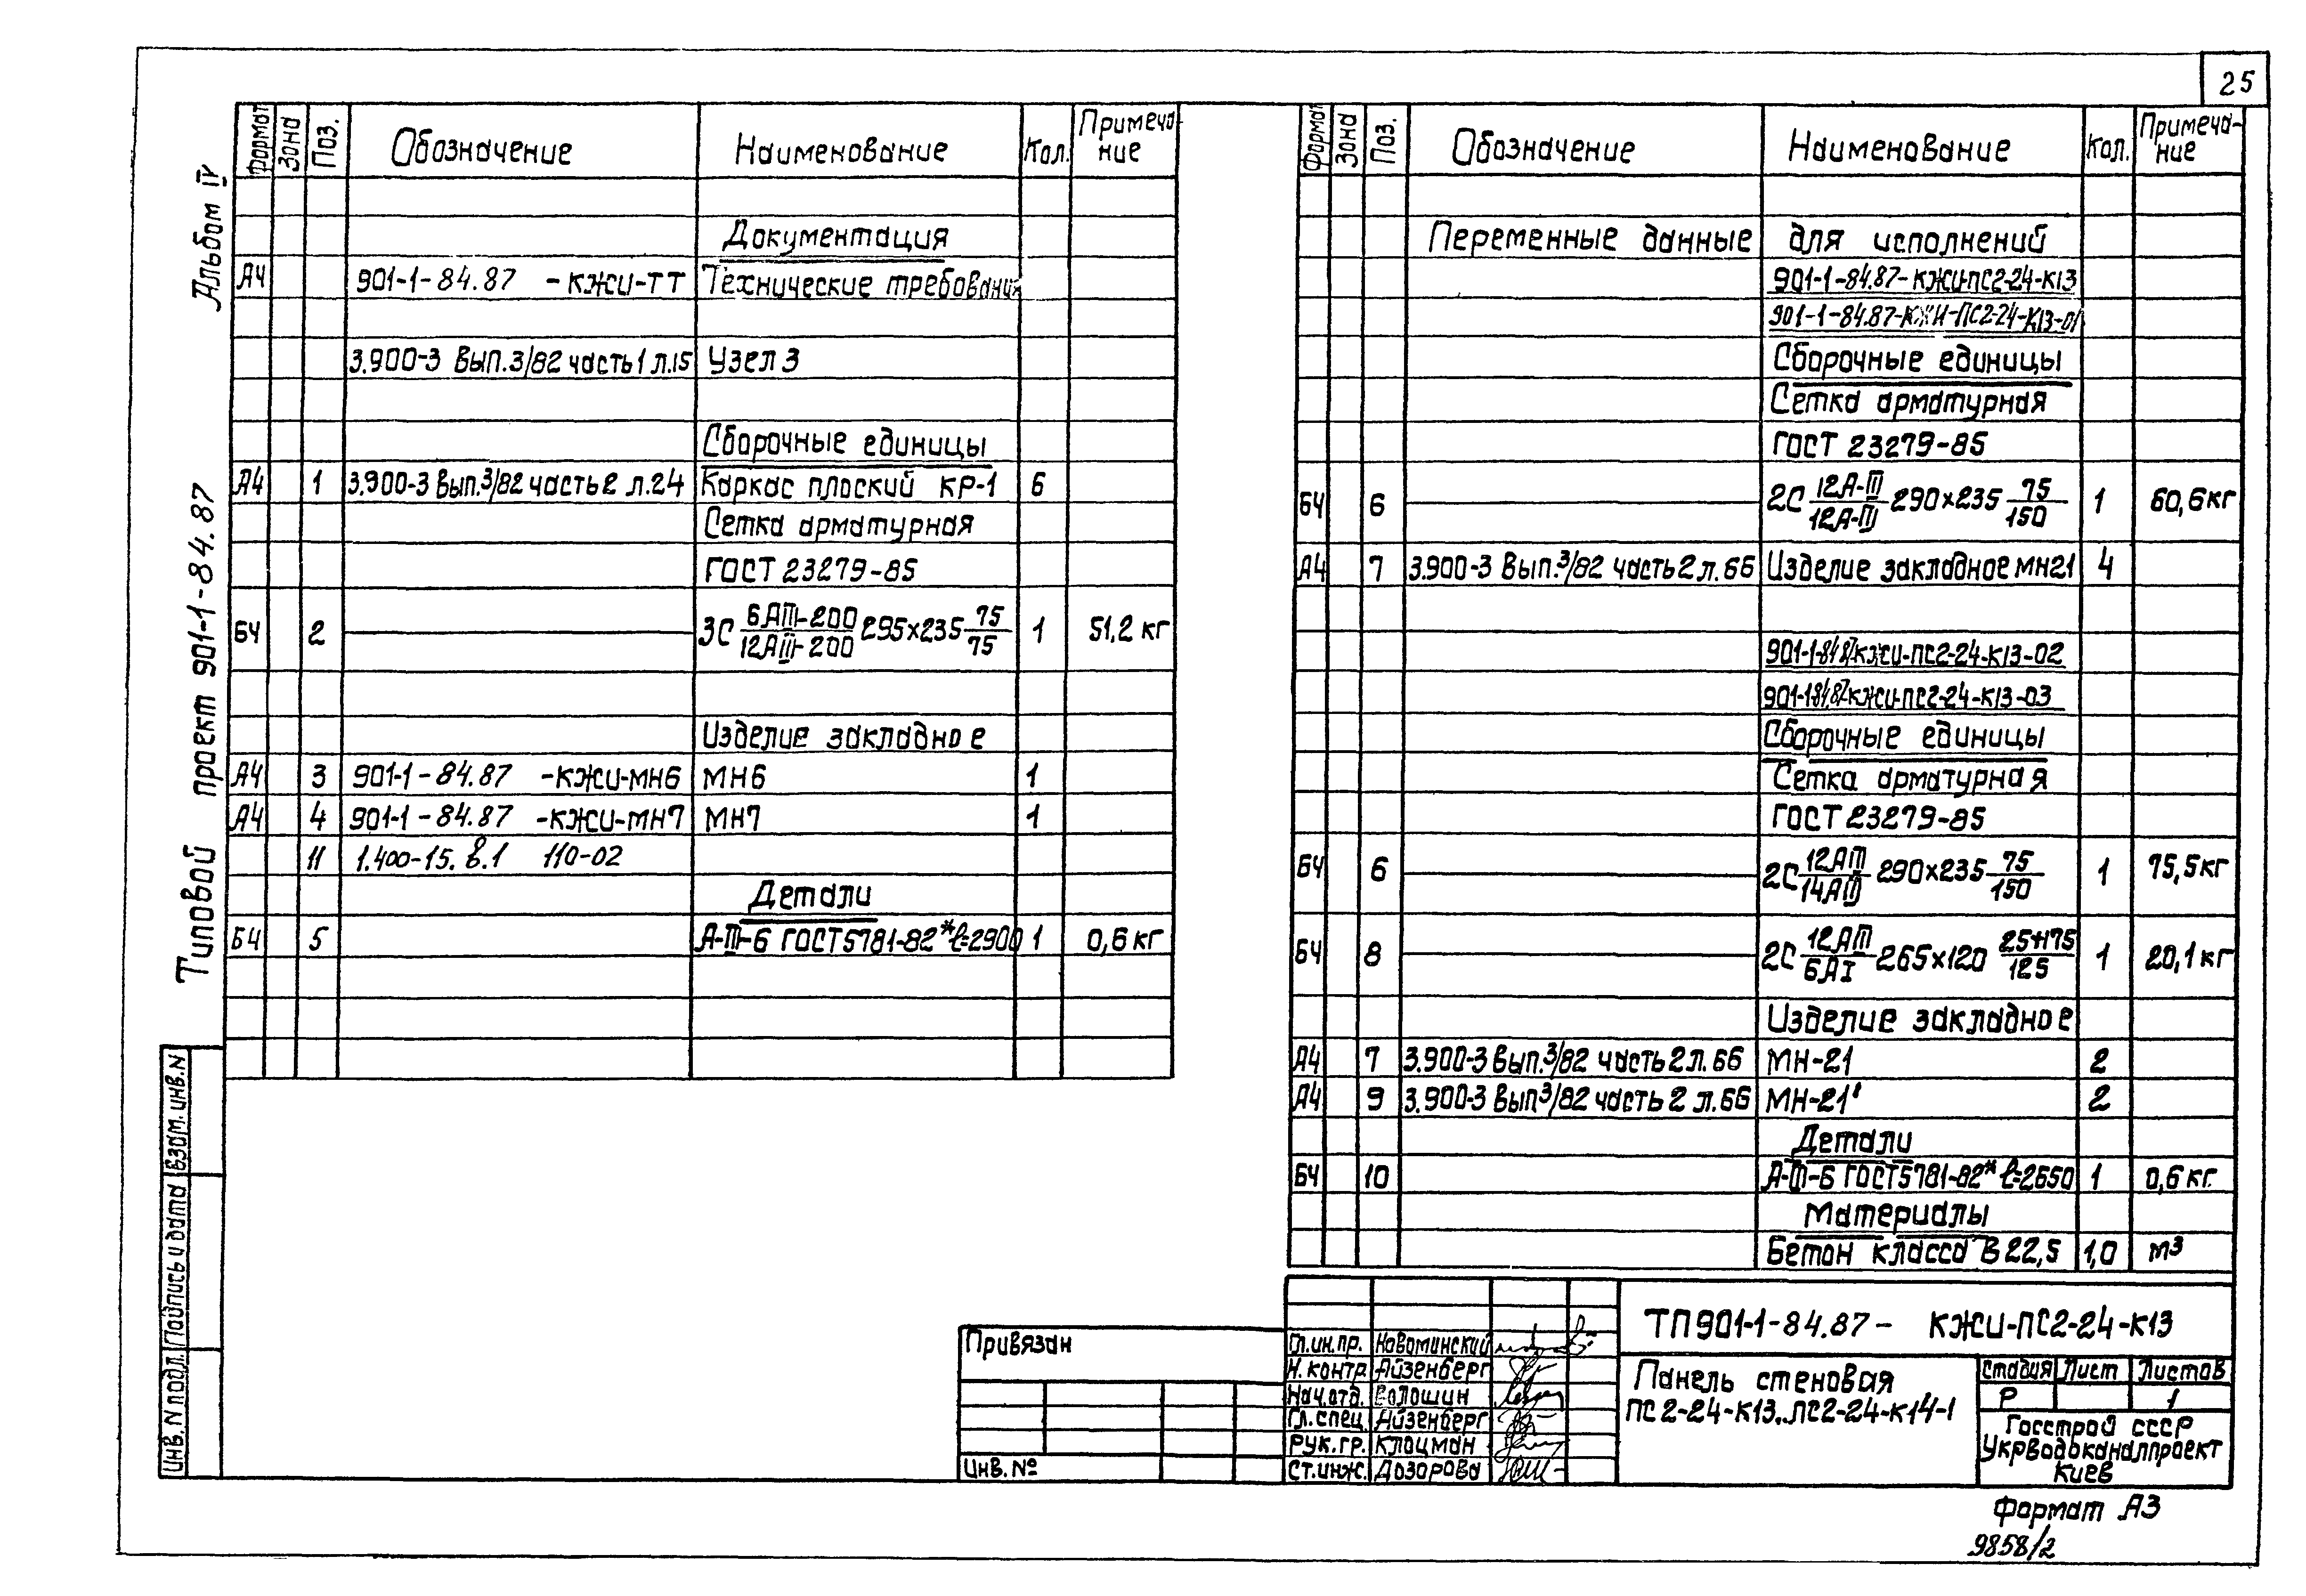 25
Альбом IV
Типовой проект 901-1-84.87
Формат Зона Поз. Обозначение Наименование Кол. Примеча-
ние
Документация
А4 901-1-84.87 -КЖИ-ТТ Технические требования
3.900-3 Вып.3/82 часть 1 л.15 Узел 3
Сборочные единицы
А4 1 3.900-3 Вып.3/82 часть 2 л.24 Каркас плоский КР-1 6
Сетка арматурная
ГОСТ 23279-85
БЧ 2 3С 6АIII-200/12АIII-200 295х235 75/75 1 51,2 кг
Изделие закладное
А4 3 901-1-84.87 -КЖИ-МН6 МН6 1
А4 4 901-1-84.87 -КЖИ-МН7 МН7 1
11 1.400-15. В.1 110-02
Детали
БЧ 5 А-III-6 ГОСТ 5781-82* ℓ=2900 1 0,6 кг
Формат Зона Поз. Обозначение Наименование Кол. Примеча-
ние
Переменные данные для исполнений
901-1-84.87-КЖИ-ПС2-24-К13
901-1-84.87-КЖИ-ПС2-24-К13-01
Сборочные единицы
Сетка арматурная
ГОСТ 23279-85
БЧ 6 2С 12А-III/12А-III 290х235 75/150 1 60,6 кг
А4 7 3.900-3 Вып.3/82 часть 2 л.66 Изделие закладное МН21 4
901-1-84.87КЖИ-ПС2-24-К13-02
901-1-84.87КЖИ-ПС2-24-К13-03
Сборочные единицы
Сетка арматурная
ГОСТ 23279-85
БЧ 6 2С 12АIII/14АIII 290х235 75/150 1 75,5 кг
БЧ 8 2С 12АIII/6АI 265х120 25+175/125 1 20,1 кг
Изделие закладное
А4 7 3.900-3 Вып.3/82 часть 2 л.66 МН-21 2
А4 9 3.900-3 Вып.3/82 часть 2 л.66 МН-21' 2
Детали
БЧ 10 А-III-6 ГОСТ 5781-82* ℓ=2650 1 0,6 кг.
Материалы
Бетон класса В 22,5 1,0 м³
Инв. N подл. Подпись и дата Взам. инв. N
Привязан
Инв. №
Гл.ин.пр. Новоминский
Н. контр. Айзенберг
Нач. отд. Волошин
Гл. спец. Айзенберг
Рук. гр. Клоцман
Ст. инж. Дозорова
ТП 901-1-84.87- КЖИ-ПС2-24-К13
Панель стеновая
ПС 2-24-К13..ПС2-24-К14-1
Стадия Лист Листов
Р 1
Госстрой СССР
Укрводоканалпроект
Киев
Формат А3
9858/2